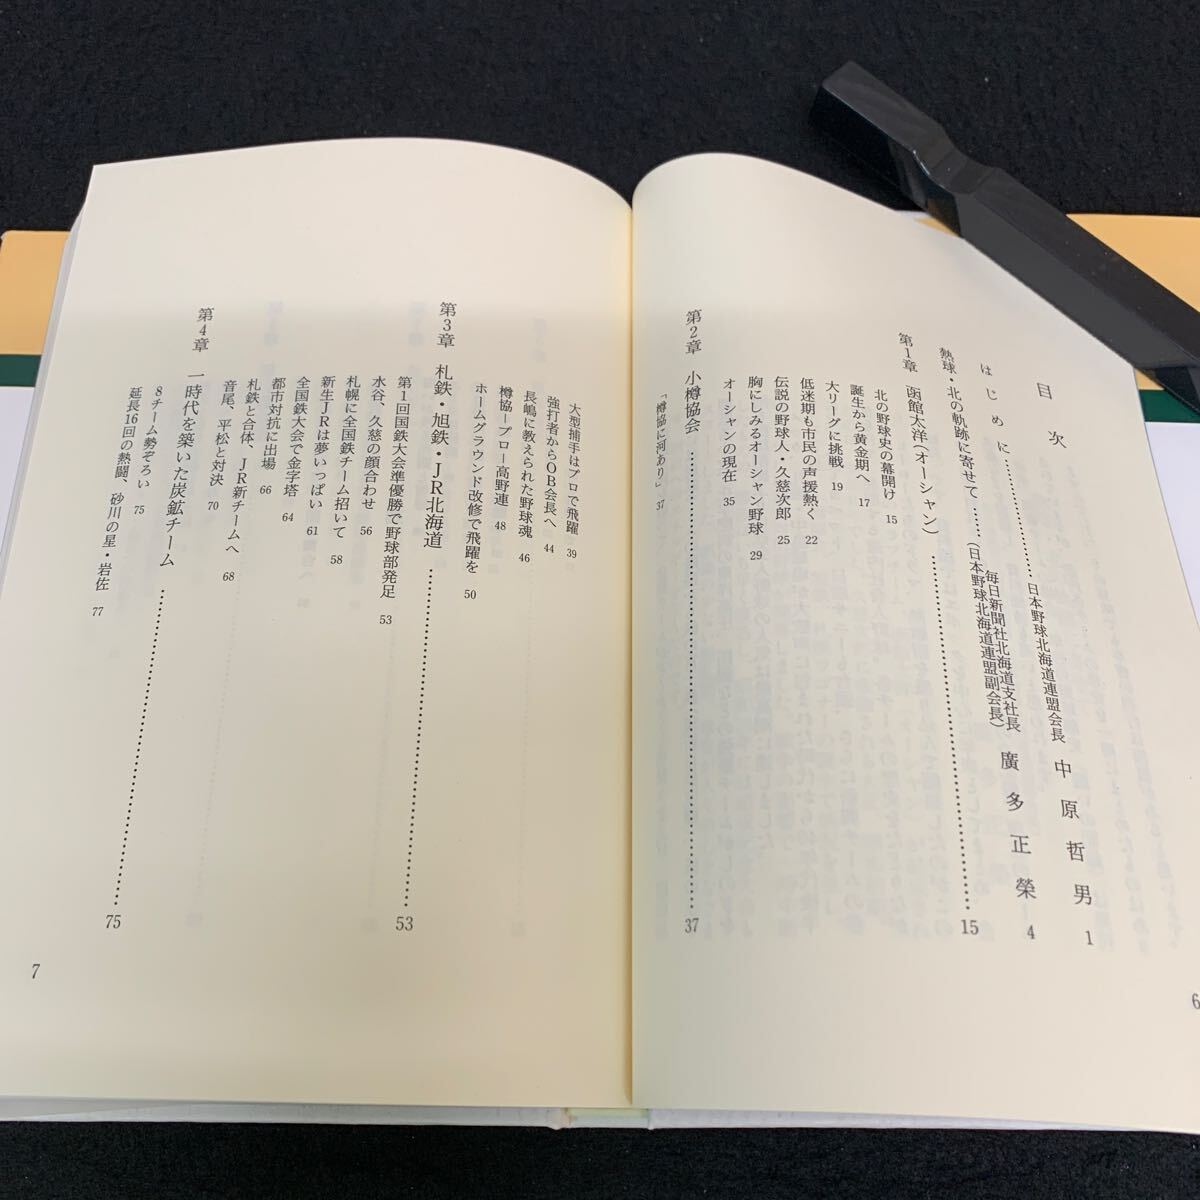 目次
はじめに……………日本野球北海道連盟会長 中原哲男 1
熱球・北の軌跡に寄せて……(毎日新聞社北海道支社長
日本野球北海道連盟副会長) 廣多正榮 4
第1章 函館太洋(オーシャン)……………15
北の野球史の幕開け 15
誕生から黄金期へ 17
大リーグに挑戦 19
低迷期も市民の声援熱く 22
伝説の野球人・久慈次郎 25
胸にしみるオーシャン野球 29
オーシャンの現在 35
第2章 小樽協会……………37
「樽協に河あり」 37
6
大型捕手はプロで飛躍 39
強打者からOB会長へ 44
長嶋に教えられた野球魂 46
樽協―プロ―高野連 48
ホームグラウンド改修で飛躍を 50
第3章 札鉄・旭鉄・JR北海道……………53
第1回国鉄大会準優勝で野球部発足 53
水谷、久慈の顔合わせ 56
札幌に全国鉄チーム招いて 58
新生JRは夢いっぱい 61
全国鉄大会で金字塔 64
都市対抗に出場 66
札鉄と合体、JR新チームへ 68
音尾、平松と対決 70
第4章 一時代を築いた炭鉱チーム……………75
8チーム勢ぞろい 75
延長16回の熱闘、砂川の星・岩佐 77
7